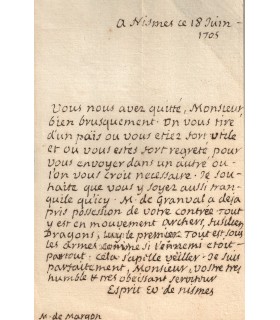 A Nismes ce 18 Juin
1705
Vous nous avez quitté, Monsieur,
bien brusquement. On vous tire
d'un païs ou vous etiez fort utile
et ou vous estes fort regreté pour
vous envoyer dans un autre ou
l'on vous croit necessaire. Je sou-
haite que vous y soyez aussi tran-
quile qu'icy. M. de Granval a deja
pris possession de votre contrée tout
y est en mouvement Archers, fusiliers
Dragons, luy le premier Tout est sous
les armes comme si l'ennemi etoit
partout. cela s'apelle veiller. Je suis
parfaitement, Monsieur, vostre tres
humble & tres obeissant serviteur
Esprit Ev de nismes
M. de Margon